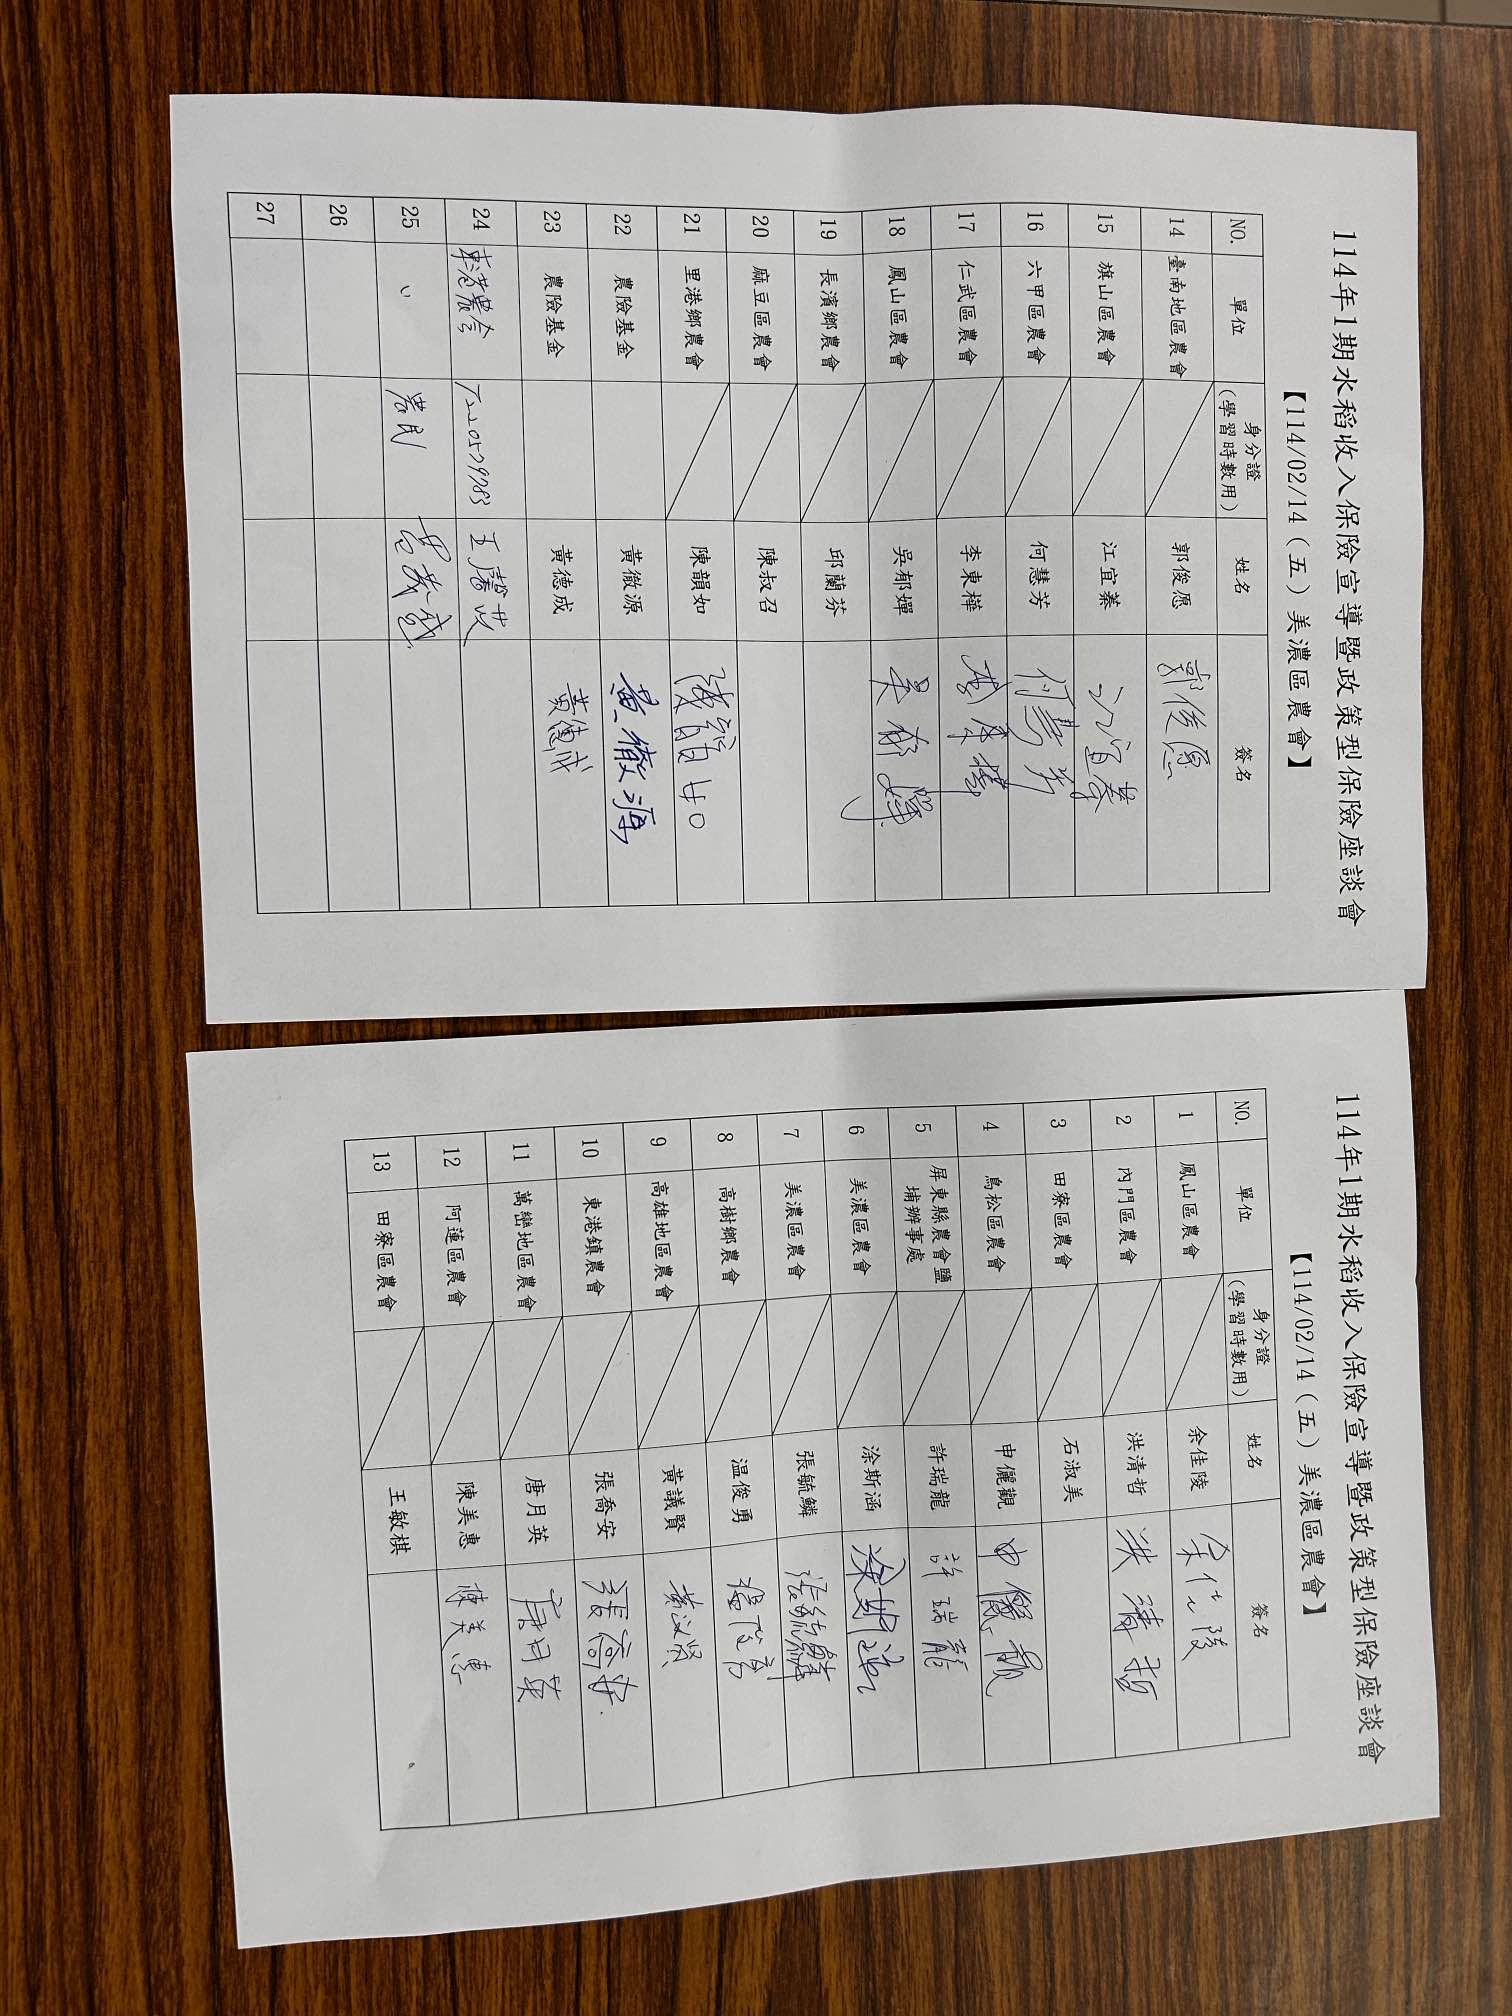 114年1期水稻收入保險宣導暨政策型保險座談會
【114/02/14（五）美濃區農會】
NO. 單位 身分證（學習時數用） 姓名 簽名
1 鳳山區農會 余佳陵 余佳陵
2 內門區農會 洪清哲 洪清哲
3 田寮區農會 石淑美
4 鳥松區農會 申儷觀 申儷觀
5 屏東縣農會鹽埔辦事處 許瑞龍 許瑞龍
6 美濃區農會 涂斯涵 涂斯涵
7 美濃區農會 張毓鱗 張毓鱗
8 高樹鄉農會 温俊勇 温俊勇
9 高雄地區農會 黃議賢 黃议賢
10 東港鎮農會 張喬安 張喬安
11 萬巒地區農會 唐月英 唐月英
12 阿蓮區農會 陳美惠 陳美惠
13 田寮區農會 王敏棋
114年1期水稻收入保險宣導暨政策型保險座談會
【114/02/14（五）美濃區農會】
NO. 單位 身分證（學習時數用） 姓名 簽名
14 臺南地區農會 郭俊愿 郭俊愿
15 旗山區農會 江宜蓁 江宜蓁
16 六甲區農會 何慧芳 何慧芳
17 仁武區農會 李東樺 李東樺
18 鳳山區農會 吳郁嬋 吳郁嬋
19 長濱鄉農會 邱蘭芬
20 麻豆區農會 陳叔召
21 里港鄉農會 陳韻如 陳韻如
22 農險基金 黃徹源 黃徹源
23 農險基金 黃德成 黃德成
24 東港農會 T220579783 王
25 〃 農民
26
27